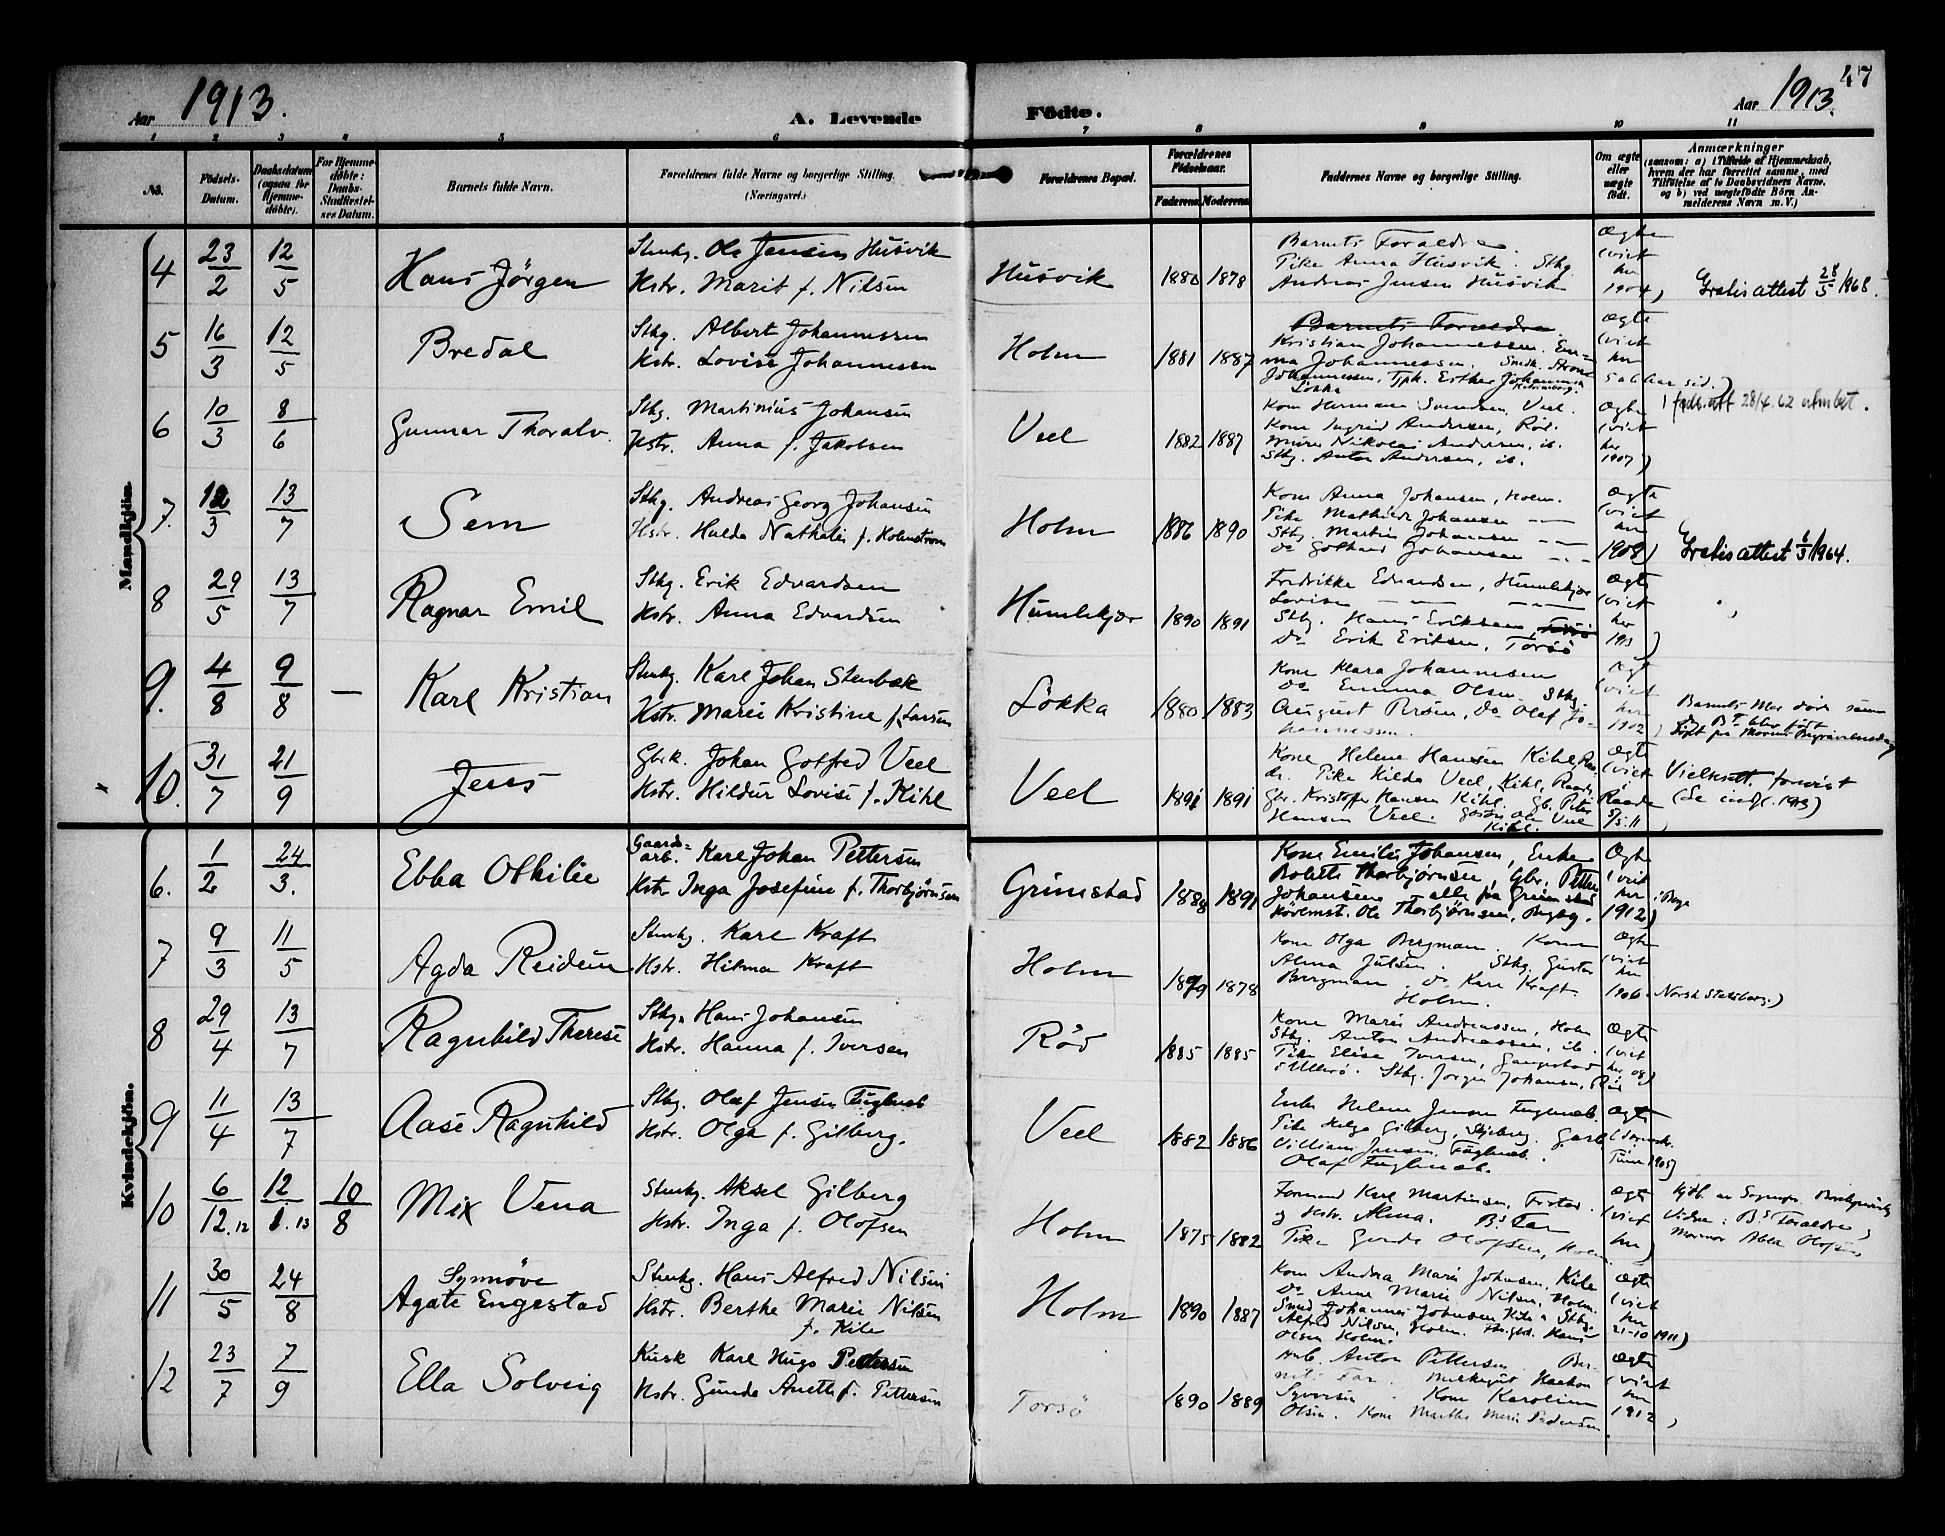 47
Aar 1913. A. Levende Födte. Aar 1913.
1 2 3 4 5 6 7 8 9 10 11
No. Födsels-Datum. Daabsdatum (ogsaa for Hjemme-døbte). For Hjemme-døbte: Daabs-Stadfæstel-ses Datum. Barnets fulde Navn. Forældrenes fulde Navne og borgerlige Stilling. (Næringsvei.) Forældrenes Bopæl. Forældrenes Födselsaar. Faderens Moderens Faddernes Navne og borgerlige Stilling. Om ægte eller uægte födt. Anmærkninger (saasom: a) i Tilfælde af Hjemmedaab, hvem der har forrettet samme, med Tilföielse af to Daabsvidners Navne, og b) ved uægtefödte Börn An-melderens Navn m. V.)
Mandkjön.
4 23/2 12/5 Hans Jörgen
Stenhg. Ole Jensen Husvik
Hstr. Marit f. Nilsen
Husvik 1880 1878
Barnets Forældre.
Pike Anna Husvik. Sthg.
Andreas Jensen Husvik
Ægte (viet her 1904)
Gratis attest 28/5 1968.
5 16/3 12/5 Bredal
Sthg. Albert Johannessen
Hstr. Lovise Johannessen
Holm 1881 1887
Barnets Forældre
Kristian Johannessen. Em-
ma Johannessen. Smdk.
Johannessen, Tjph. Esther Johannessen
Løkka
Ægte (viet her
5 aar sid.)
1 føds.att 28/4.62
6 10/3 8/6 Gunnar Thoralv.
Sthg. Martinius Johansen
Hstr. Anna f. Jakobsen
Veel 1882 1887
Kone Hermana Svendsen, Veel.
Kone Ingrid Andersen, Röd.
Murer Nikolai Andersen, ib.
Sthg. Anton Andersen, ib.
Ægte (viet her 1907)
7. 12/3 13/7 Sem
Sthg. Andreas Georg Johansen
Hstr. Hulda Nathalie f. Holmstrøm
Holm 1886 1890
Kone Anna Johansen, Holm.
Pike Mathilde Johansen — —
Sthg. Martin Johansen — —
Do Gothard Johansen — —
Ægte (viet her 1909)
Gratis attest 1/3 1964.
8 29/5 13/7 Ragnar Emil
Sthg. Erik Edvardsen
Hstr. Anna Edvardsen
Humlekjær 1890 1891
Fredrikke Edvardsen, Humlekjær
Lovise — —
Sthg. Hans Eriksen, Torsö
Do Erik Eriksen, Torsö
Ægte (viet her 1913)
9. 4/8 9/8 — Karl Kristian
Stenhg. Karl Johan Stenbæk
Hstr. Marie Kristine f. Larsen
Løkka 1880 1883
Kone Klara Johannesen
Do Emma Olsen. Sthg.
August Brøsen, Do Olaf Jo-
hannessen.
Ægt (viet her 1902)
Barnets Mor döde samme
dag Bt. blev födt
Döpt paa Morens Begravelsesdag
10. 31/7 21/9 Jens
Gbrk. Johan Gotfred Veel
Hstr. Hildur Lovise f. Kihl
Veel 1891 1891
Kone Helene Hansen Kihl, Raa-
de. Pike Hilda Veel, Kihl, Raade,
Gbr. Kristofer Hansen Kihl. Gb. Peter
Hansen Veel. Ole Veel
Kihl.
Ægte (viet i Raade 5/5.11)
Vielsesatt. forevist
(Se indfl. 1913)
Kvindekjön.
6. 1/2 24/3. Ebba Othilie
Gaards-
arb. Karl Johan Pettersen
Hstr Inga Josefine f. Thorbjörnsen
Grimstad 1888 1891
Kone Emilie Johansen, Enke
Bolette Thorbjörnsen, Gbr. Petter
Johansen — alle fra Grimstad
Ole Thorbjörnsen,
Ægte (viet her 1912)
7 9/3 11/5 Agda Reidun
Stenhg. Karl Kraft
Hstr. Hilma Kraft
Holm 1879 1878
Kone Olga Bergman. Kone
Alma Julsen. Sthg. Gustav
Bergman. Do Karl Kraft.
Holm.
Ægte (viet her 1906. Norsk Statsborg.)
8 29/4 13/7 Ragnhild Therese
Sthg. Hans Johansen
Hstr. Hanna f. Iversen
Röd 1885 1885
Kone Marie Andreassen, Holm
Sthg. Anton Andreassen, ib.
Pike Elise Iversen, Gangestad
Sthg. Jørgen Johansen, Röd
Ægte (viet her
9 11/4 13/7 Aase Ragnhild
Sthg. Olaf Jensen Fuglevik
Hstr. Olga f. Gilberg.
Veel 1882 1886
Enke Helene Jensen Fuglevik
Pike Helga Gilberg, Skjeberg. Garb.
William Jensen, Fuglevik.
Olaf Fuglevik.
Ægte
Tune 1905)
10 6/12.12 12/1.13 10/8 Mix Vena
Stenhg. Aksel Gilberg
Hstr. Inga f. Olofsen
Holm 1875 1882
Formand Karl Martinsen, Fr.stad.
og Hstr. Alma. Bs Far
Pike Gunda Olofsen, Holm
Ægte (viet her)
Hjdb. av Sognepr. Borchgrevink
Vidner: Bs Forældre,
Mormor Abla Olofsen
11 30/5 24/8 Synnöve
Agate Engestad
Stenhg. Hans Alfred Nilsen
Hstr. Berthe Marie Nilsen
f. Kile
Holm 1890 1887
Kone Andrea Marie Johnsen, Kile
Do Anne Marie Nilsen, Holm.
Smed Johannes Johnsen Kile. Sthg.
Alfred Nilsen, Holm. Hans
Olsen Holm.
Ægte (viet her 21-10 1911)
12 23/7 7/9 Ella Solveig
Kusk Karl Hugo Pedersen
Hstr. Gunda Anette f. Pettersen
Torsö 1890 1889
Anton Pettersen. Bar-
nets Far. Haakon
Syversen. Kone Karoline
Olsen. Kone Marthe Marie Pedersen.
Ægte (viet her 1912)